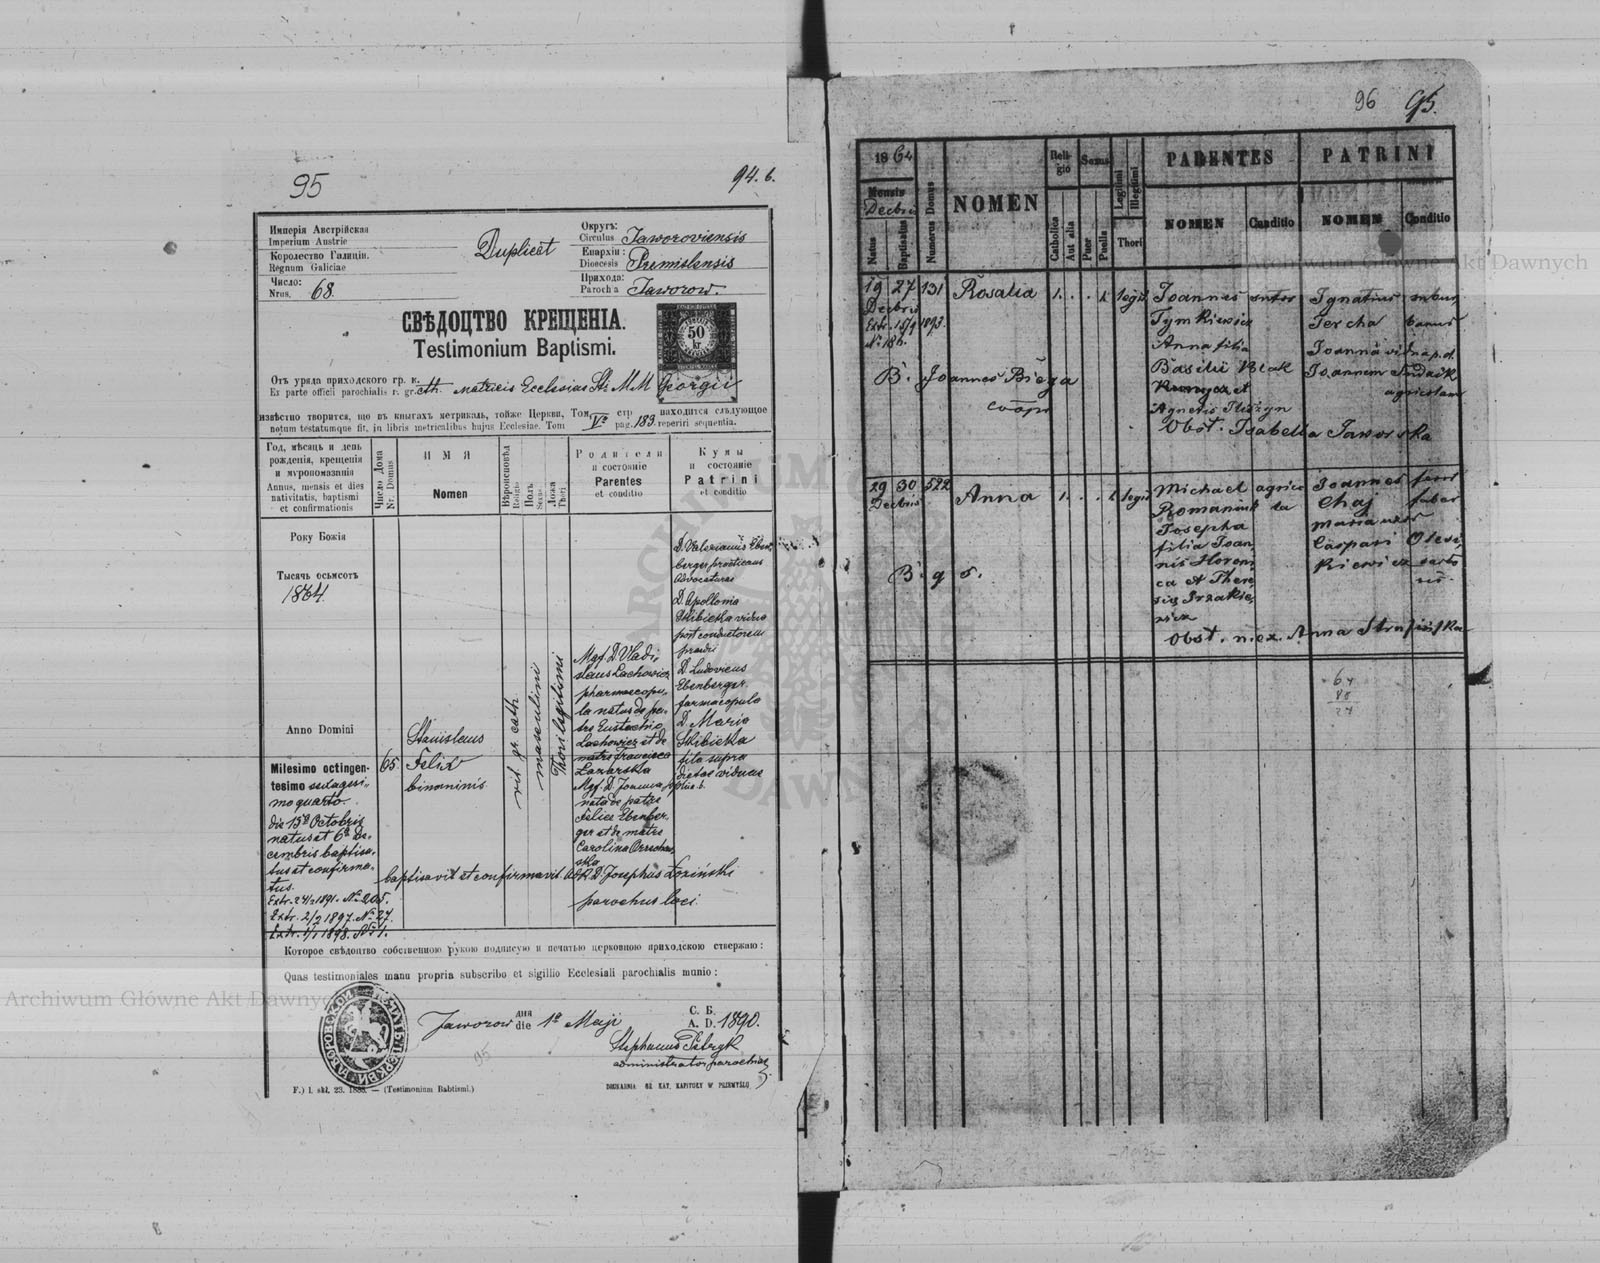 95
94. b.
Имперія Австрійская
Imperium Austrie
Королество Галиціи.
Regnum Galiciae
Число:
Nrus. 68.
Duplicat
Округъ:
Circulus Jaworoviensis
Епархіи:
Dioecesis Premislensis
Прихода:
Parocha Jaworow
СВѢДОЦТВО КРЕЩЕНІЯ.
Testimonium Baptismi.
50
kr
Отъ уряда приходского гр. к.
Ex parte officii parochialis r. gr. cath. Matricis Ecclesiae Sti M M Georgii
извѣстно творится, що въ книгахъ метрикаль, тойже Церкви, Том V стр находится слѣдующое
notum testatumque fit, in libris metricalibus hujus Ecclesiae. Tom pag. 183. reperiri sequentia.
Год, мѣсяць и день
рожденія, крещенія
и муропомазанія
Annus, mensis et dies
nativitatis, baptismi
et confirmationis
Число Дома
Nr. Domus
ИМЯ
Nomen
Вѣроисповѣд
Religio
Полъ
Sexus
Ложа
Thori
Родители
и состояніе
Parentes
et conditio
Кумы
и состояніе
Patrini
et conditio
Року Божія
Тысячь осьмсотъ
1864.
Anno Domini
Milesimo octingen-
tesimo sexagesi-
mo quarto
die 15a Octobris
natus et 6a De-
cembris baptisa-
tus et confirma-
tus.
Extr. 2/2 1897. No 27.
65.
Stanislaus
Felix
binominis
rit. gr. cath.
masculini
Thori legitimi
Mgf. D. Vladi-
slaus Lachowicz
pharmacopo-
la natus de pa-
tre Eustachio
Lachowicz et de
matre Francisca
Lazarska
Mgf. D. Joanna
nata de patre
Felice Ebenber-
ger et de matre
Carolina
D. Valerianus Eben-
berger practicans
Advocaturae
D. Apollonia
Skibicka vidua
post conductorem
praedii
D. Ludovicus
Ebenberger
farmacopola
D. Maria
Skibicka
filia supra
dictae viduae
baptisavit et confirmavit D. Josephus Łoziński
parochus loci.
Которое свѣдоцтво собственною рукою подписую и печатью церковною приходскою стверждаю:
Quas testimoniales manu propria subscribo et sigillio Ecclesiali parochialis munio:
Jaworow дня
die 1a Maji
С. Б.
A. D. 1890.
Stephanus
administrator parochiae
95
F.) l. skł. 23. 1888. — (Testimonium Babtismi.)
96 95.
1864
Mensis
Decbris
Natus
Baptisatus
Numerus Domus
NOMEN
Religio
Catholica
Aut alia
Sexus
Puer
Puella
Legitimi
Illegitimi
Thori
PARENTES
NOMEN
Conditio
PATRINI
NOMEN
Conditio
19 27 131 Rosalia 1. . . 1. legit.
Decbris
Joannes sutor
Tymkiewicz
Anna filia
Basilii Vlak
et
Agnetis
Ignatius subur
Jercha banus
agricolam
B. Joannes Biega
coop
Obst. Isabella Jaworska
29 30 522 Anna 1. . . 1. legit
Decbris
Michael agrico
Romaniuk la
Josepha
filia Joan-
nis
ca et There
sia
wicz
Joannes ferri
Chaj faber
Maria uxor
Caspari
kiewicz
B. q s.
Obst. n. ex. Anna
64
27
Archiwum Główne Akt Dawnych
Archiwum Główne Akt Dawnych